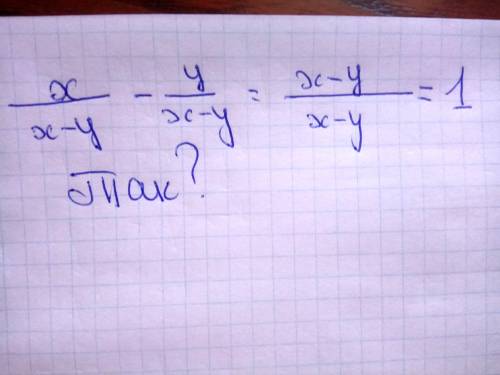 x/(x-y) - y/(x-y) = (x-y)/(x-y) = 1
Так?